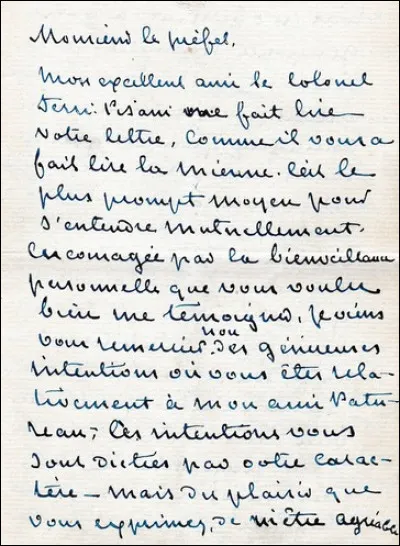 Monsieur le préfet,
Mon excellent ami le colonel
Ferri-Pisani me fait lire
votre lettre, comme il vous a
fait lire la mienne. C'est le
plus prompt moyen pour
s'entendre mutuellement.
Encouragée par la bienveillance
personnelle que vous voulez
bien me témoigner, je viens
non
vous remercier des généreuses
intentions où vous êtes rela-
tivement à mon ami Patu-
reau; Ces intentions vous
sont dictées par votre carac-
tère – mais du plaisir que
vous exprimez, de m'être agréable